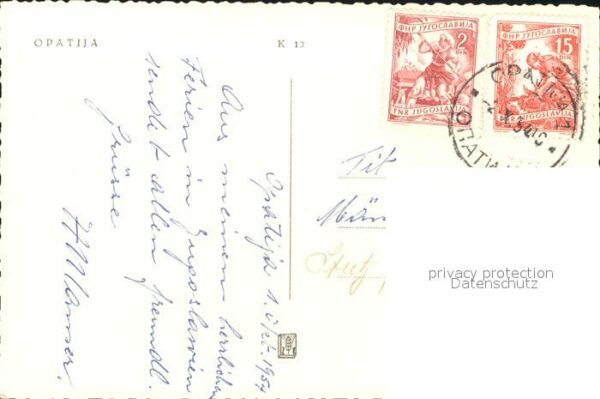 OPATIJA
K 12
ФНР ЈУГОСЛАВИЈА
2
FNR JUGOSLAVIJA
ФНР ЈУГОСЛАВИЈА
15
DIN
FNR JUGOSLAVIJA
OPATIJA
Opatija 1. Okt. 1954
Aus meinen herrlichen
Ferien in Jugoslawien
sendet allen freundl.
Grüsse
Tit
Män
privacy protection
Datenschutz